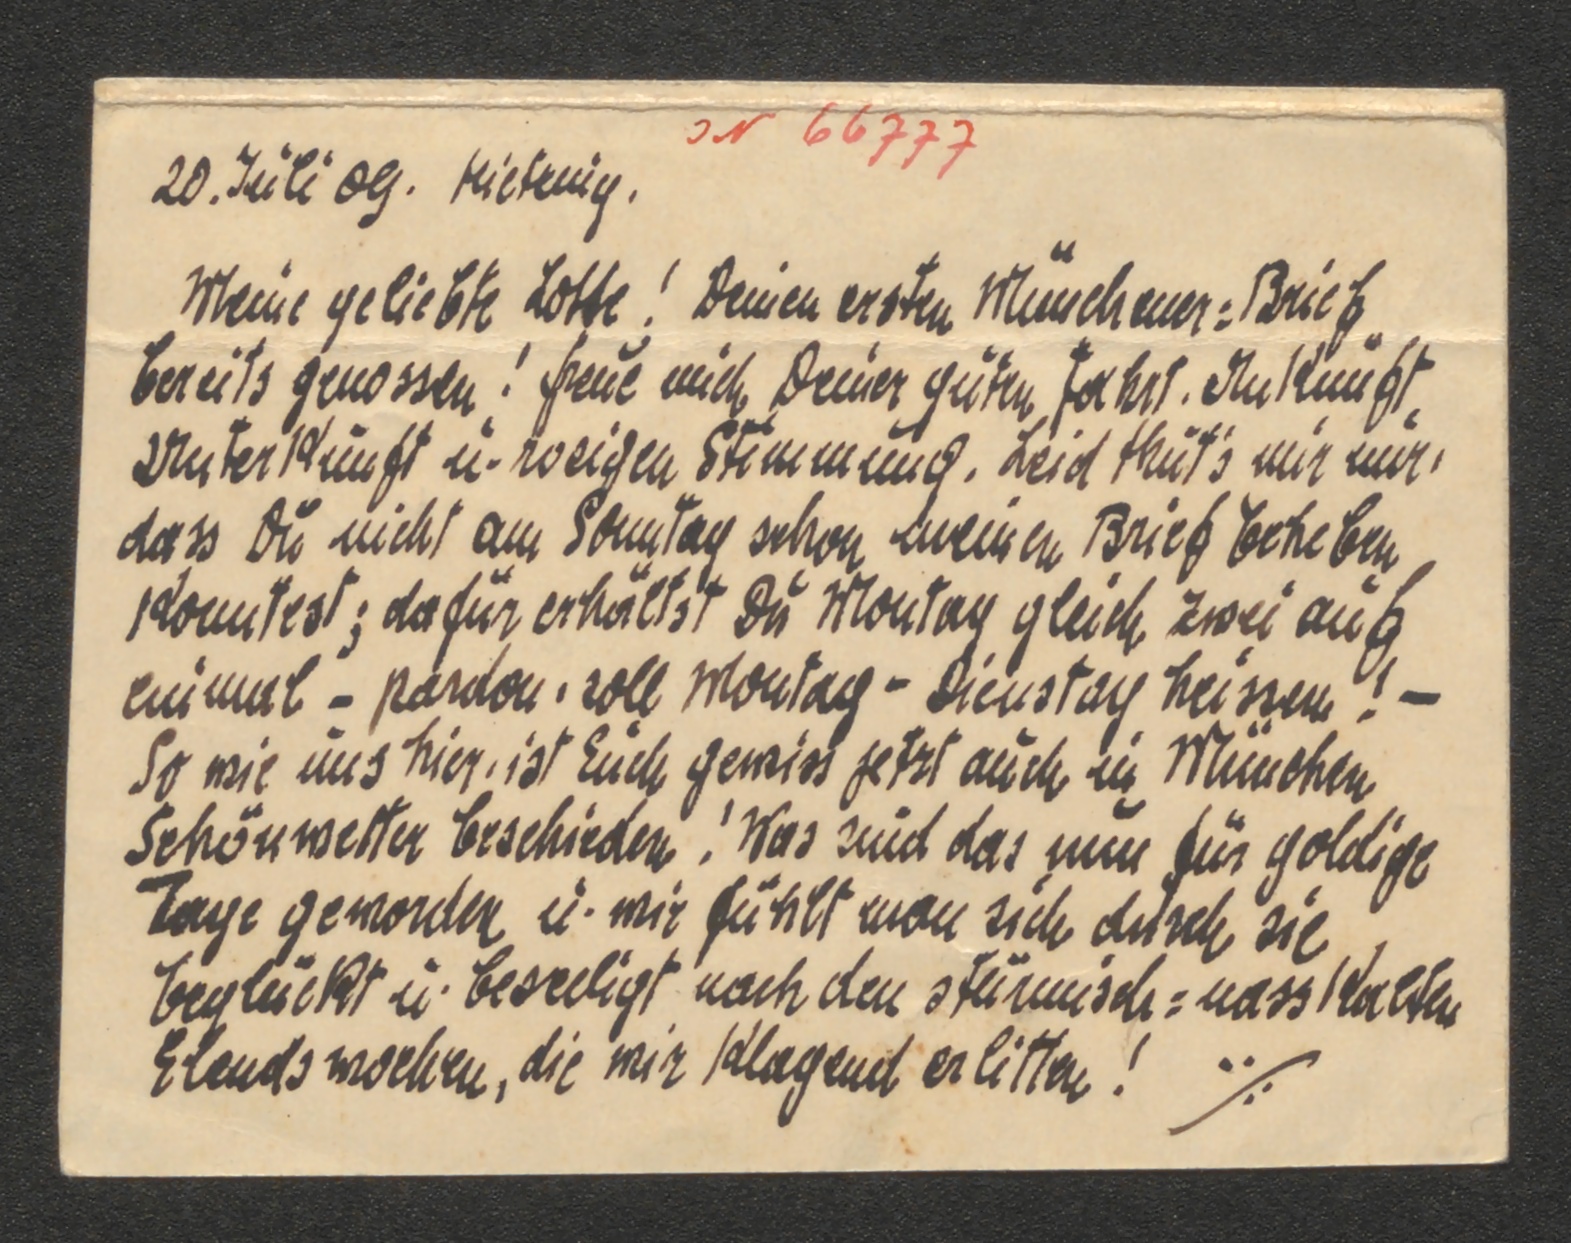 JN 66777
20. Juli 09. Hietzing.
Meine geliebte Lotte! Deinen ersten Münchener=Brief
bereits genossen! freue mich Deiner guten Fahrt. Ankunft,
Unterkunft u. rosigen Stimmung. Leid thut's mir nur,
dass Du nicht am Sonntag schon meinen Brief beheben
konntest; dafür erhältst Du Montag gleich zwei auf
einmal - pardon, soll Montag - Dienstag heissen! -
So wie uns hier, ist Euch gewiss jetzt auch in München
Schönwetter beschieden! Was sind das nun für goldige
Tage geworden u. wie fühlt man sich durch sie
beglückt u. beseeligt nach den stürmisch=nasskalten
Elendswochen, die wir klagend erlitten! ./.